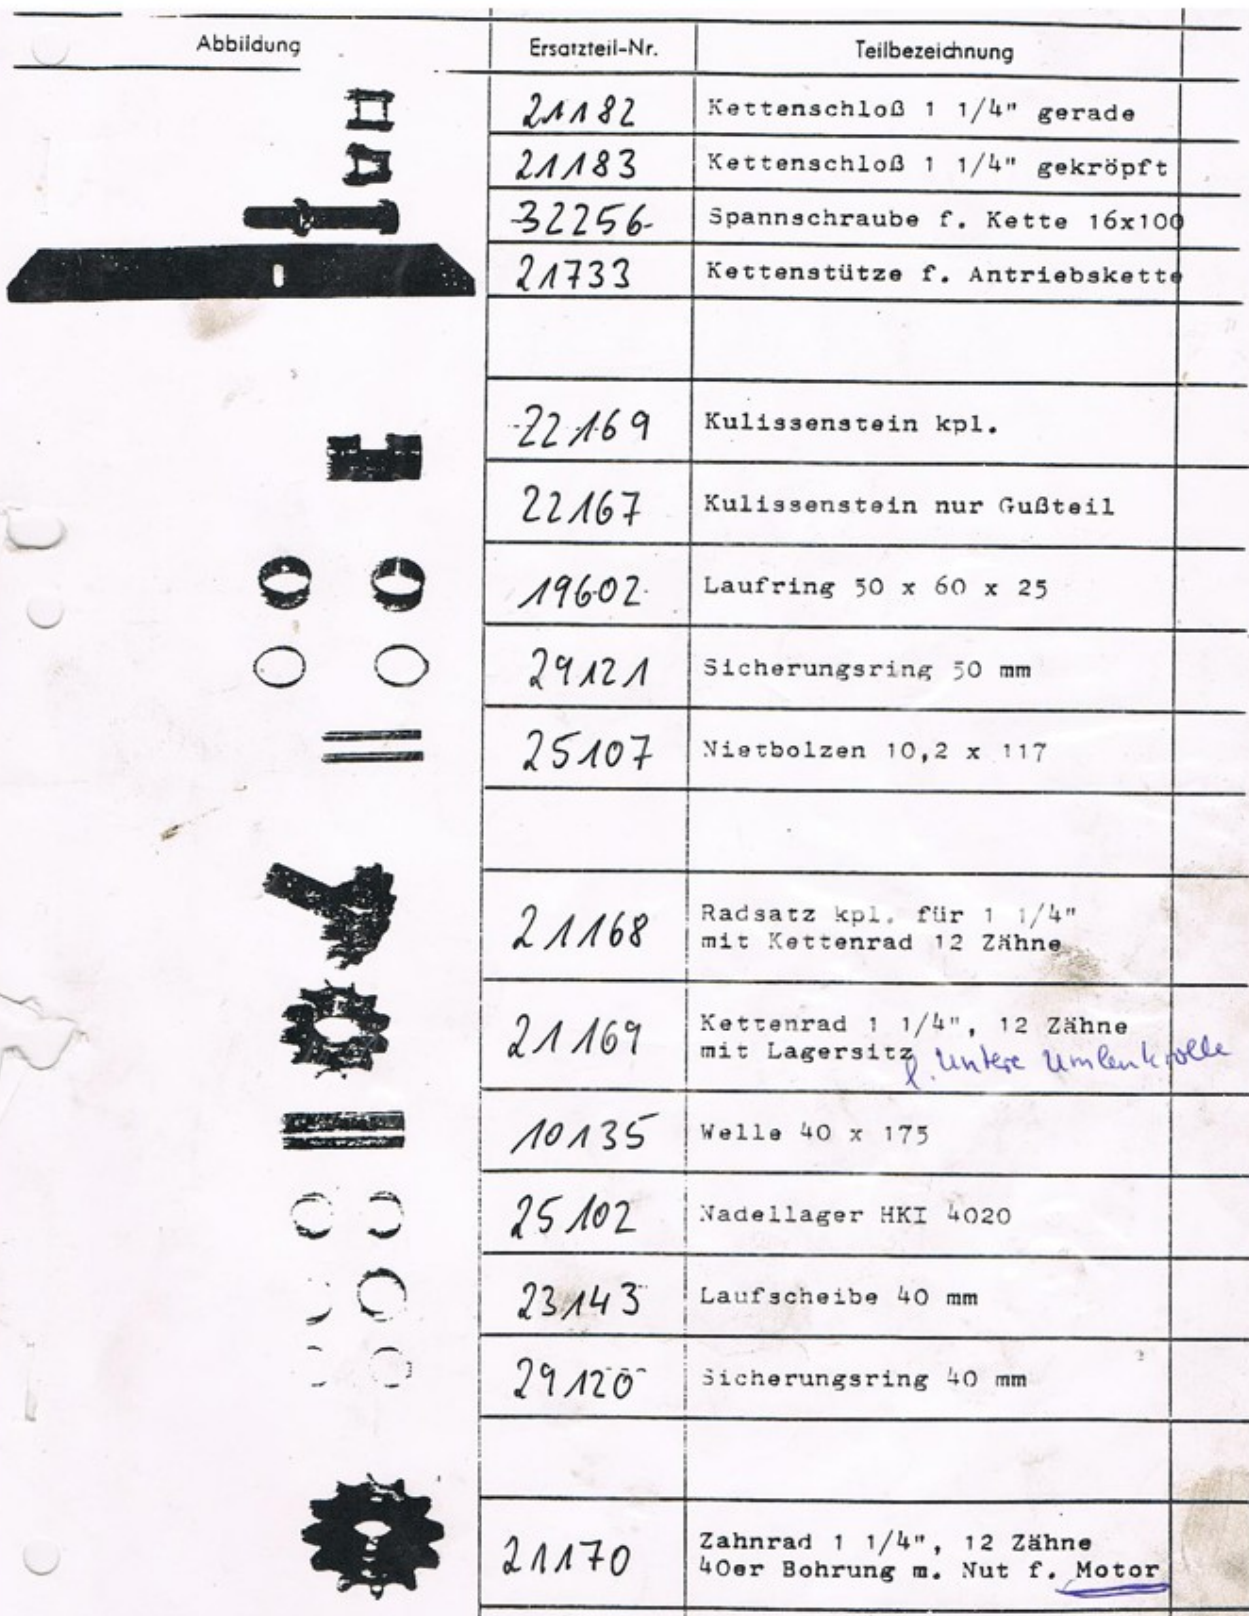 Abbildung Ersatzteil-Nr. Teilbezeichnung
21182 Kettenschloß 1 1/4" gerade
21183 Kettenschloß 1 1/4" gekröpft
32256 Spannschraube f. Kette 16x100
21733 Kettenstütze f. Antriebskette
22169 Kulissenstein kpl.
22167 Kulissenstein nur Gußteil
19602 Laufring 50 x 60 x 25
29121 Sicherungsring 50 mm
25107 Nietbolzen 10,2 x 117
21168 Radsatz kpl. für 1 1/4"
mit Kettenrad 12 Zähne
21169 Kettenrad 1 1/4", 12 Zähne
mit Lagersitz
f. untere Umlenkrolle
10135 Welle 40 x 175
25102 Nadellager HKI 4020
23143 Laufscheibe 40 mm
29120 Sicherungsring 40 mm
21170 Zahnrad 1 1/4", 12 Zähne
40er Bohrung m. Nut f. Motor